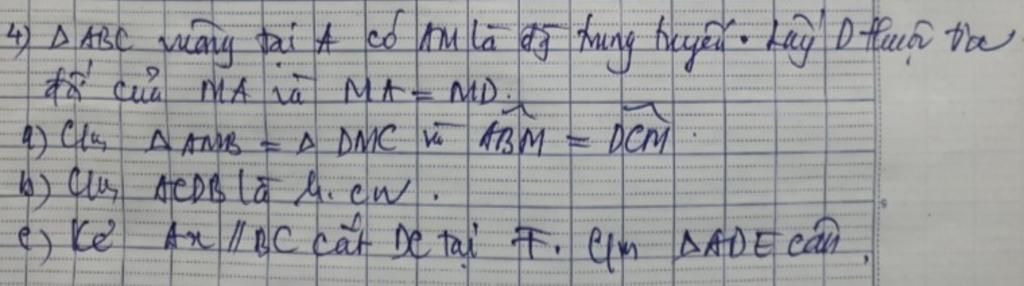 4) Δ ABC vuông tại A có AM là đg trung tuyến. Lấy D thuộc tia
đối của MA và MA = MD.
a) Cm Δ AMB = Δ DMC và ABM = DCM.
b) Cm ACDB là h.cn.
c) Kẻ Ax // BC cắt DC tại F. Cm ΔADE cân.